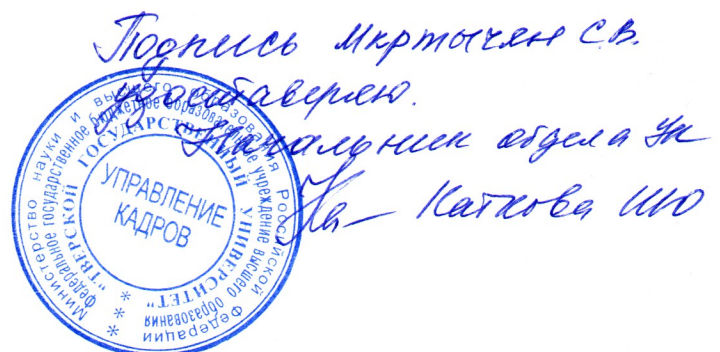 Подпись Мкртычян С.В.
удостоверяю.
Начальник отдела УК
Каткова ИЮ
Министерство науки и высшего образования Российской Федерации
федеральное государственное бюджетное образовательное учреждение высшего образования
"ТВЕРСКОЙ ГОСУДАРСТВЕННЫЙ УНИВЕРСИТЕТ"
УПРАВЛЕНИЕ
КАДРОВ